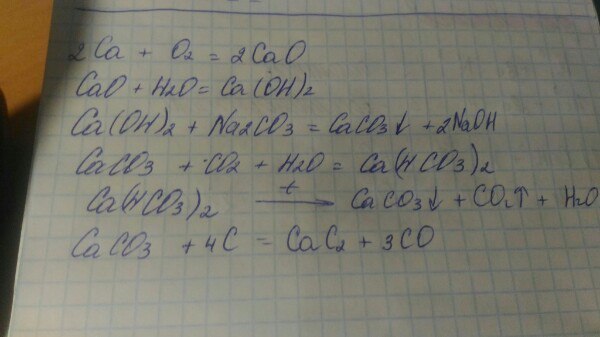 2Ca + O2 = 2CaO
CaO + H2O = Ca(OH)2
Ca(OH)2 + Na2CO3 = CaCO3↓ + 2NaOH
CaCO3 + CO2 + H2O = Ca(HCO3)2
Ca(HCO3)2 —t→ CaCO3↓ + CO2↑ + H2O
CaCO3 + 4C = CaC2 + 3CO